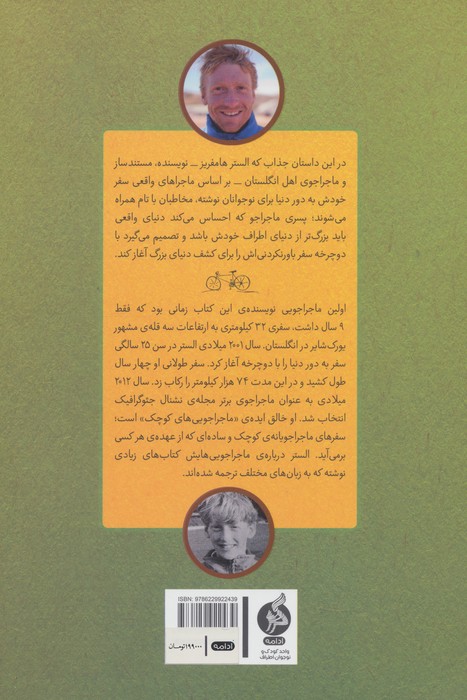 در این داستان جذاب که الستر هامفریز ــ نویسنده، مستندساز
و ماجراجوی اهل انگلستان ــ بر اساس ماجراهای واقعی سفر
خودش به دور دنیا برای نوجوانان نوشته، مخاطبان با تام همراه
می‌شوند؛ پسری ماجراجو که احساس می‌کند دنیای واقعی
باید بزرگ‌تر از دنیای اطراف خودش باشد و تصمیم می‌گیرد با
دوچرخه سفر باورنکردنی‌اش را برای کشف دنیای بزرگ آغاز کند.
اولین ماجراجویی نویسنده‌ی این کتاب زمانی بود که فقط
۹ سال داشت، سفری ۳۲ کیلومتری به ارتفاعات سه قله‌ی مشهور
یورک‌شایر در انگلستان. سال ۲۰۰۱ میلادی الستر در سن ۲۵ سالگی
سفر به دور دنیا را با دوچرخه آغاز کرد. سفر طولانی او چهار سال
طول کشید و در این مدت ۷۴ هزار کیلومتر را رکاب زد. سال ۲۰۱۲
میلادی به عنوان ماجراجوی برتر مجله‌ی نشنال جئوگرافیک
انتخاب شد. او خالق ایده‌ی «ماجراجویی‌های کوچک» است؛
سفرهای ماجراجویانه‌ی کوچک و ساده‌ای که از عهده‌ی هر کسی
برمی‌آید. الستر درباره‌ی ماجراجویی‌هایش کتاب‌های زیادی
نوشته که به زبان‌های مختلف ترجمه شده‌اند.
ISBN: 9786229922439
۱۹۹۰۰۰تومان
ادامه
ادامه
واحد کودک و
نوجوان اطراف